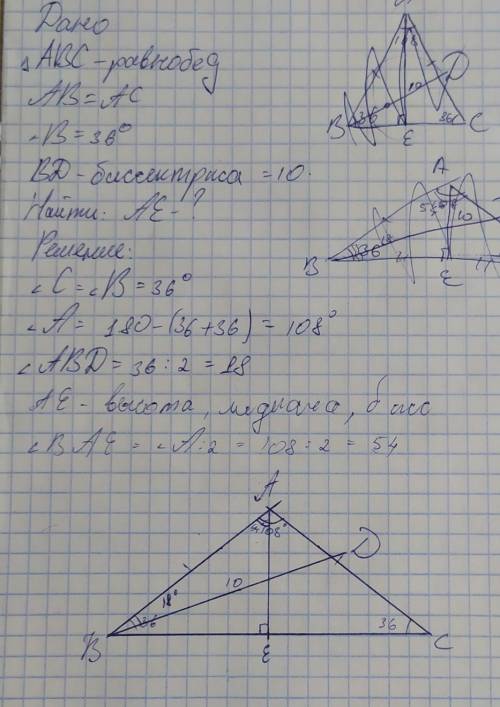 Дано
△ABC - равнобед
AB = AC
∠B = 36°
BD - биссектриса = 10.
Найти: AE - ?
Решение:
∠C = ∠B = 36°
∠A = 180 - (36 + 36) = 108°
∠ABD = 36 : 2 = 18
AE - высота, медиана, бисс
∠BAE = ∠A : 2 = 108 : 2 = 54
D
10
B 36° 36 C
E
A
54
10
B 36
E
A
108°
D
10
18°
B 36 36 C
E